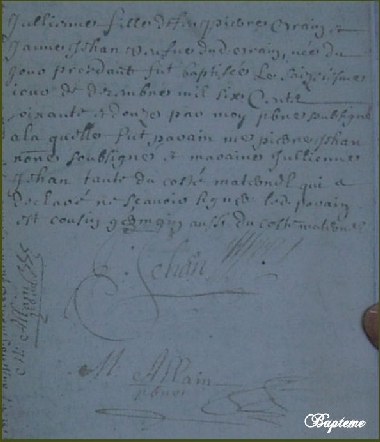 Jullienne fille de feu pierre Orain et
Janne Jehan veufve dud orain, née du
jour precedant fut baptisée le seiziesme
jour de decembre mil six Cents
soixante et douze par moy pbre soubsigné
a la quelle fut parain me pierre Jehan
soubsignes et maraine Jullienne
Jehan tante du costé maternel qui a
declaré ne sçavoir signer les parain
est cousin germain aussi du costé maternel
P. Jehan
M. Allain
pbre
Bapteme